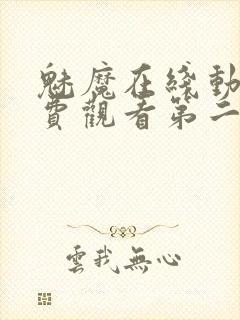 魅魔在綫動
費觀看第二
雲我無心